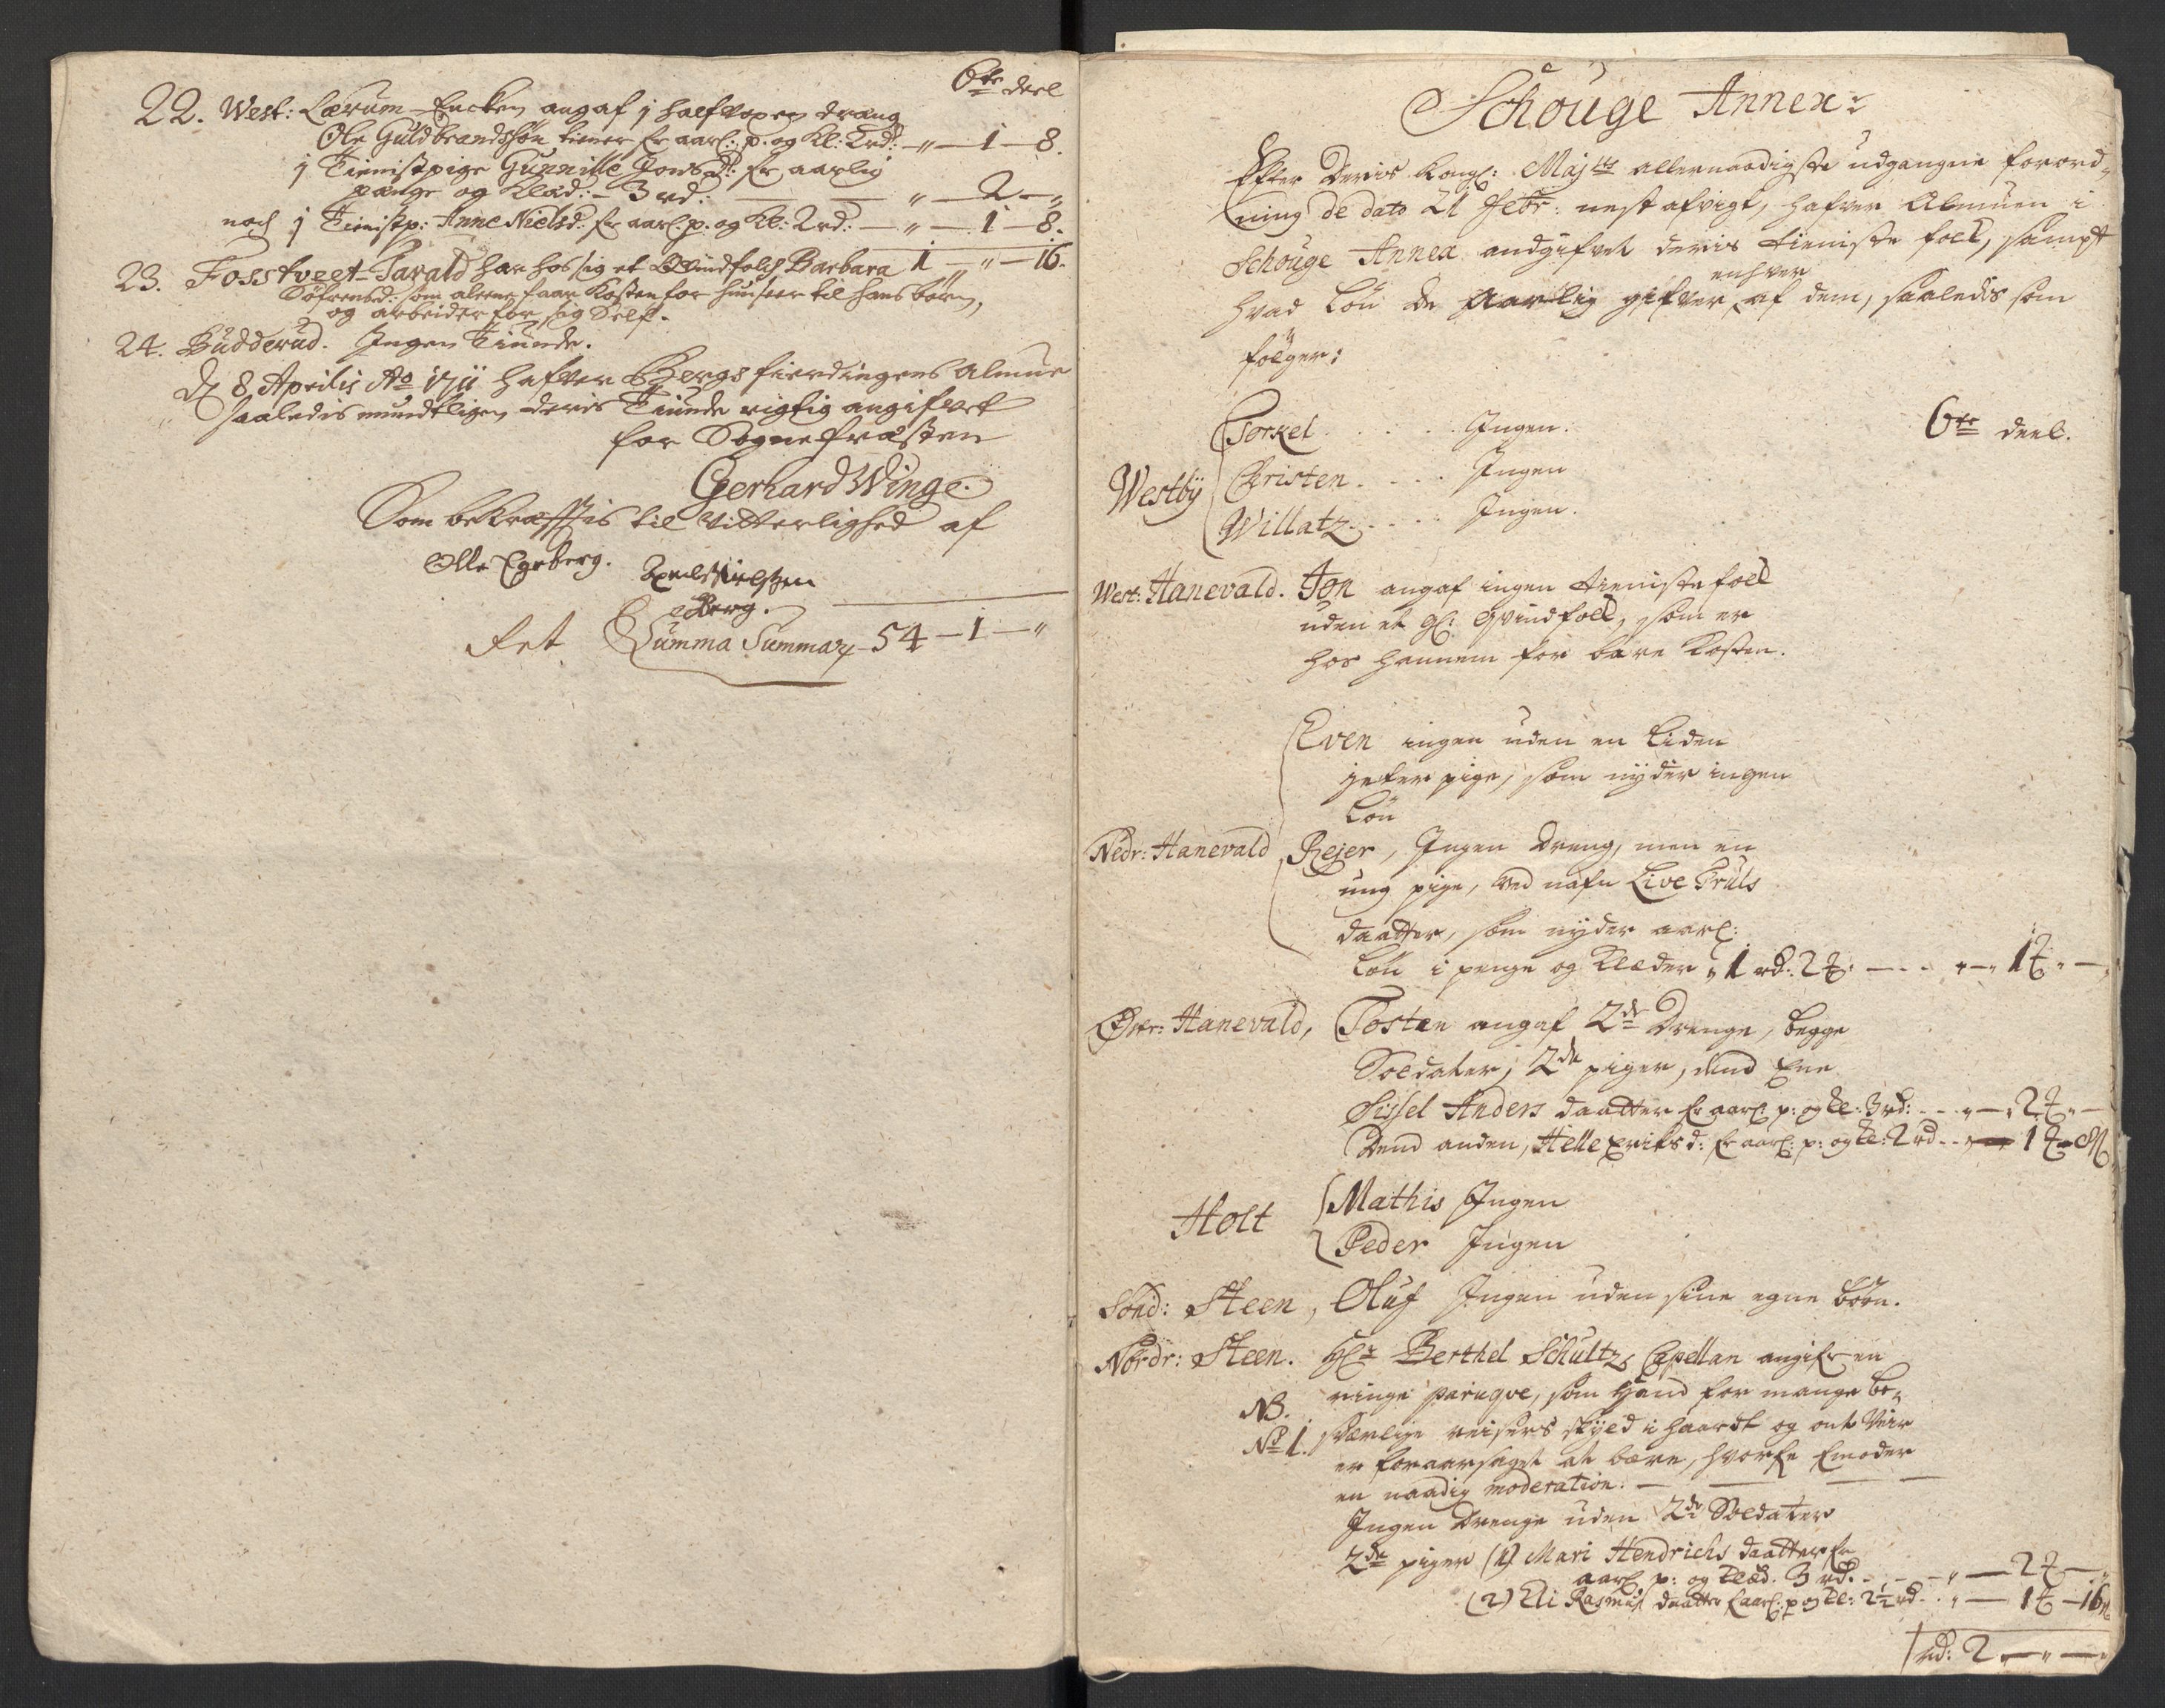 6te deel
22. West: Lærum-Encken angaf 1 halfvoxen dräng
Ole Guldbrandssøn tiener for aarl: p. og Kl: 2rd: — „ — 1 — 8.
1 Tienistpige Gunnille Jonsd: for aarlig
pænge og Klæd: - 3 rd: — „ — 2 — „
noch 1 Tienistp: Anne Nielsd: for aarl: p. og Kl: 2rd: — „ — 1 — 8.
23. Fosstveet-Tarald har hos sig et Qvindfolch Barbara 1 — „ — 16.
Söfrensd: som aleene faar Kosten for hun seer til hans børn,
og arbeider for sig Self.
24. Budderud. Ingen Tiunde.
D 8 Aprilis Ao 1711 hafver Bergs fierdingens Almue
saaledis mundtligen deris Tiunde rigtig angifvet
for Sognepræsten
Gerhard Winge.
Som bekræfftis til Vitterlighed af
Olle Egeberg. Nielssen
Berg.
Fet Summa Summar 54 — 1 — „
Schouge Annex:
Efter Deris Kongl: Majtts allernaadigste udgangne forord-
ning de dato 21 Febr: nest afvigt, hafver Almuen i
Schouge Annex andgifvet deris tieniste folck, sampt
hvad Løn de Aarlig gifver enhver af dem, saaledis som
følger:
6te deel.
Torkel . . . . . Ingen.
Westby Christen . . . . Ingen
Willatz . . . . Ingen.
West: Hanevald. Jon angaf ingen tieniste folck
uden et gl: Qvindfolck, som er
hos hannem for bare Kosten.
Even ingen uden en liden
jeter pige, som nyder ingen
Løn
Nedr: Hanevald Rejer, Ingen Dreng, men en
ung pige, ved nafn Live Truls
daatter, som nyder aarl:
Løn i penge og Klæder, 1 rd: 2 — . . — 1 —
Øfr: Hanevald, Tosten angaf 2de Drenge, begge
Soldater, 2de piger, dend Ene
Sissel Anders daatter for aarl: p: og kl: 3 rd: - - „ — 2 „ —
Dend anden, Helle Eriksd: for aarl: p: og kl: 2 rd - - 1 — 8
Holt Mathis Ingen
Peder Ingen
Sönd: Steen, Oluf Ingen uden sine egne Børn.
Nordr: Steen. Hr Berthel Schultz, Capellan angifr en
ringe paruqve, som Hand for mange be-
NB.
No 1. sværlige reisers skyld i haardt og ont Veir
er foraarsaget at bære, hvorfor Emoder
en naadig moderation. — — —
Ingen Drenge uden 2de Soldater
2de piger (1) Mari Hendrichs daatter for
aarl: p: og klæd. 3 rd. - - - „ — 2 —
(2) Eli Rasmus daatter for aarl: p og kl: 2½ rd - - „ — 1 — 16
rd: 2 — „ — „